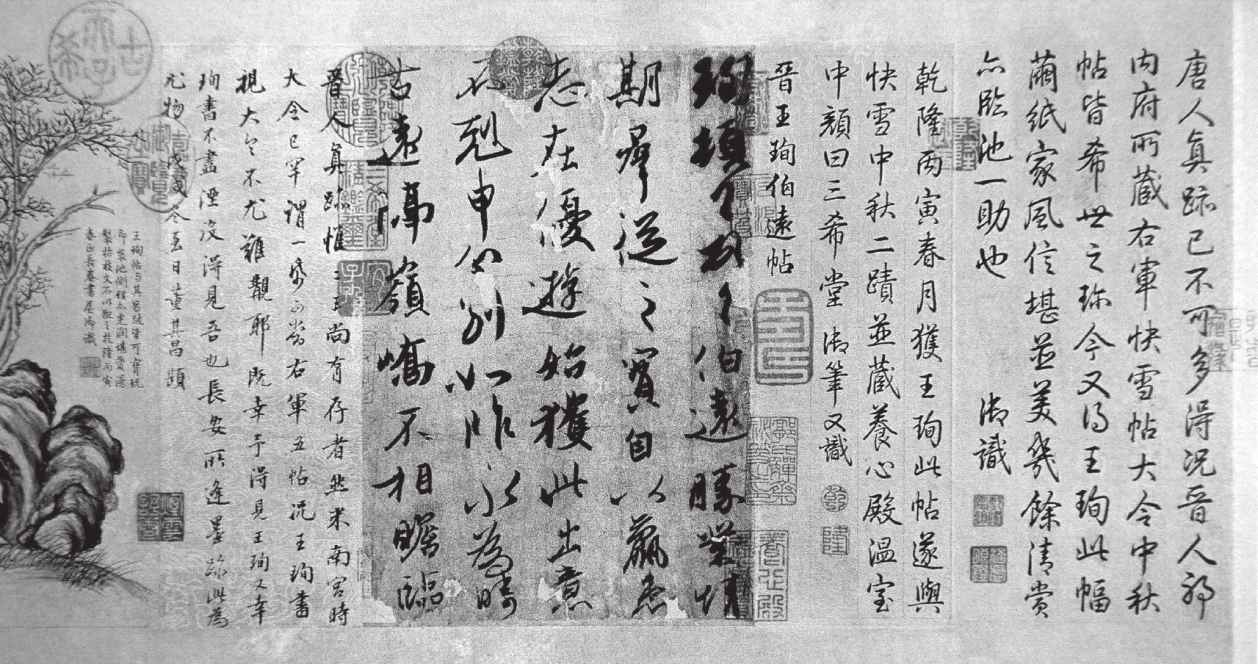 唐人真跡已不可多得況晉人耶
內府所藏右軍快雪帖大令中秋
帖皆希世之珍今又得王珣此幅
繭紙家風信堪並美幾餘清賞
亦臨池一助也 御識
乾隆丙寅春月獲王珣此帖遂與
快雪中秋二蹟並藏養心殿溫室
中顏曰三希堂 御筆又識
乾 隆
晉王珣伯遠帖
養心殿
珣頓首頓首伯遠勝業情
期羣從之寶自以羸患
志在優遊始獲此出意
不剋申分別如昨永為疇
古遠隔嶺嶠不相瞻臨
晉人真跡惟二王尚有存者然米南宮時
大令已罕謂一紙可當右軍五帖況王珣書
視大令不尤難覯耶既幸予得見王珣又幸
珣書不盡湮沒得見吾也長安所逢墨跡此為
尤物 戊戌冬至日董其昌題
王珣帖與其昌跋皆可寶玩
即裝池側理亦光潤堪愛漫
製枯枝文石以配之乾隆丙寅
春正長春書屋御識
古希天子